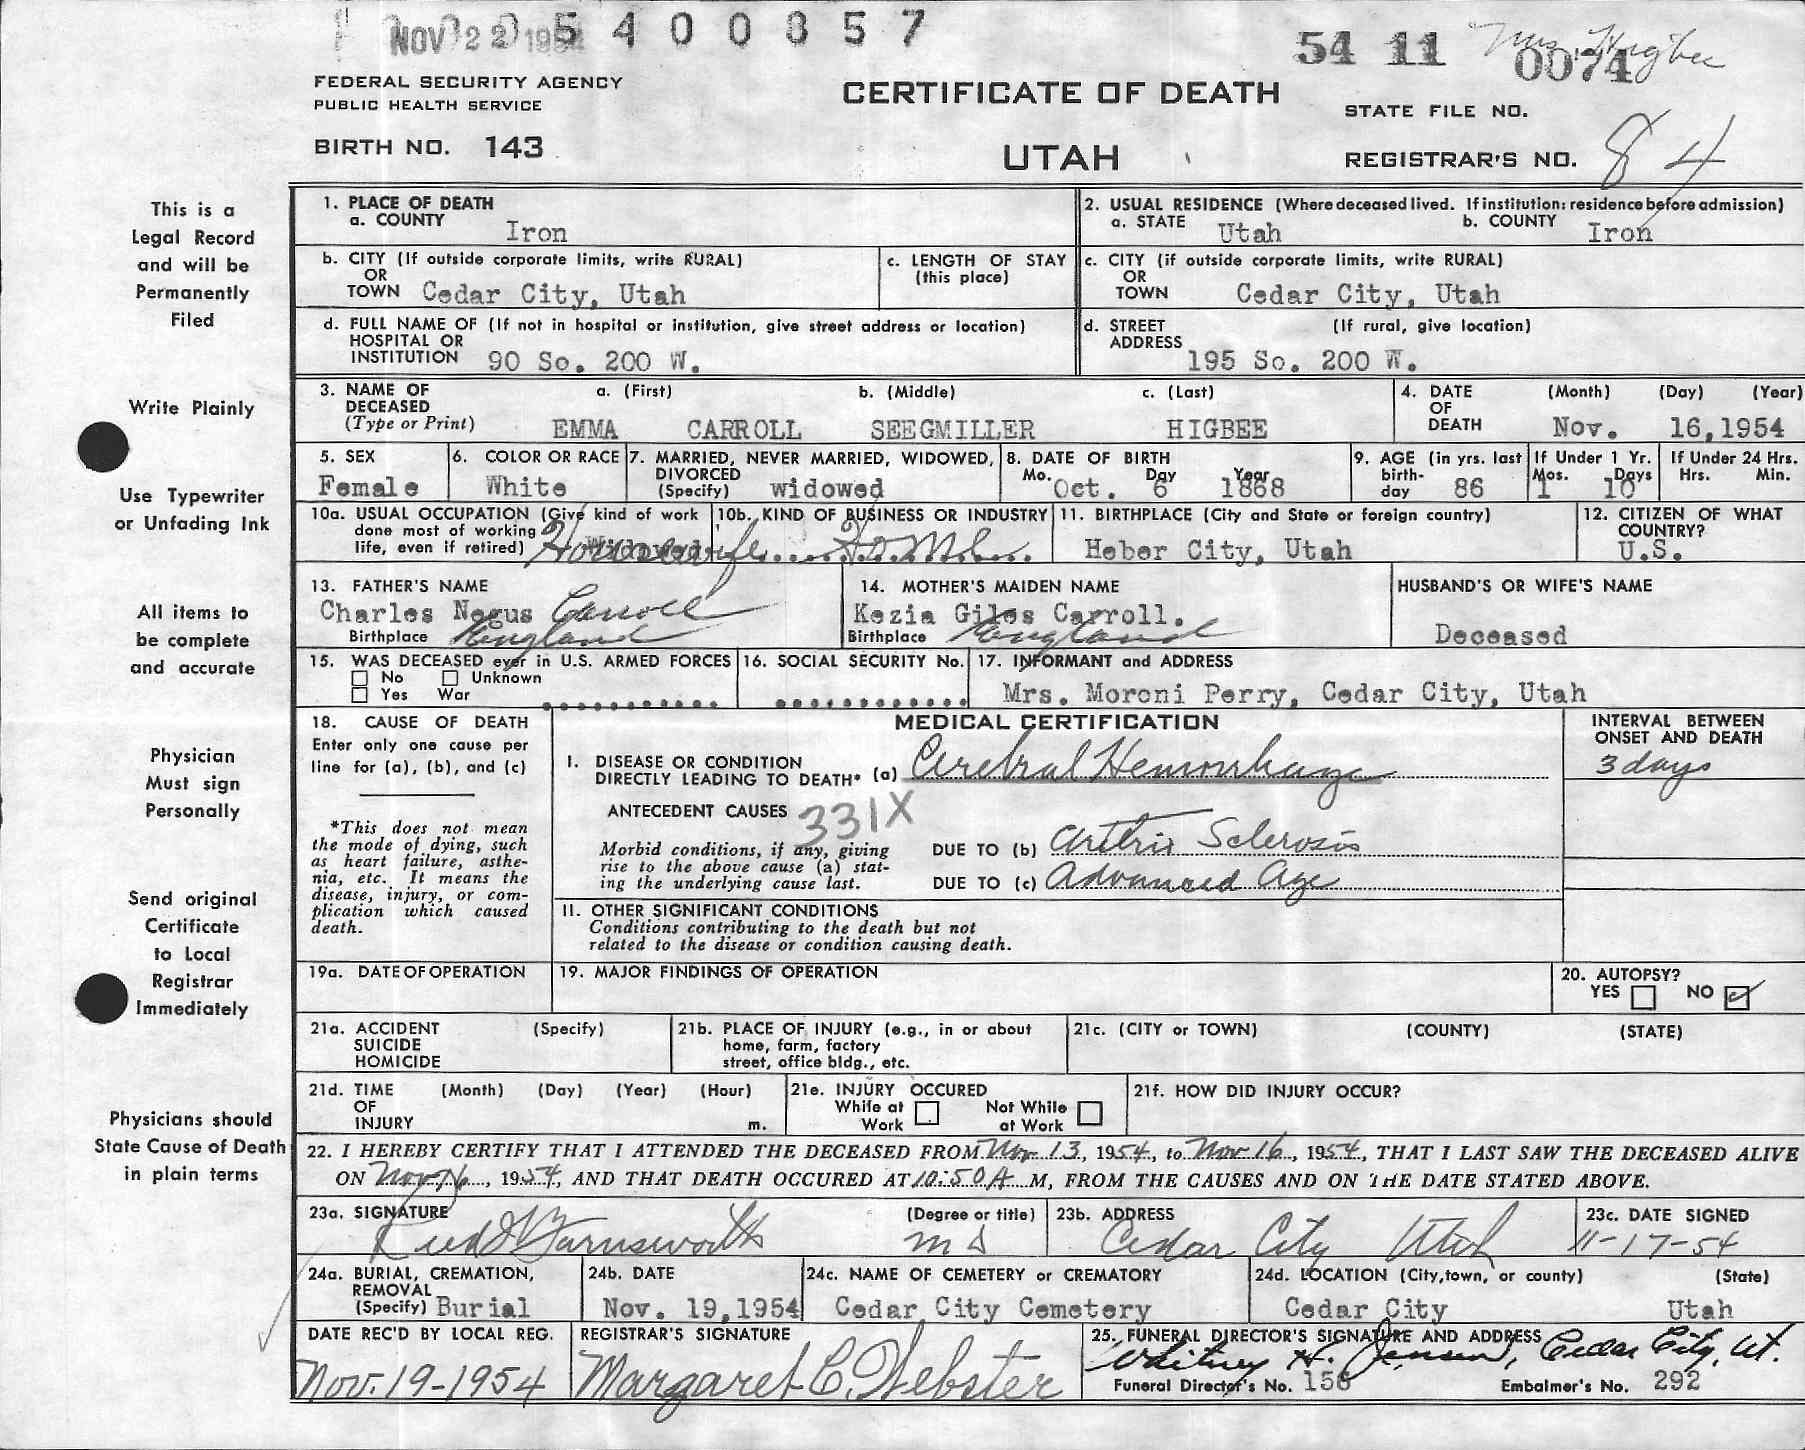 NOV 22 1954 5 4 0 0 8 5 7
54 11 0074 Mrs. Higbee
FEDERAL SECURITY AGENCY
PUBLIC HEALTH SERVICE
CERTIFICATE OF DEATH
STATE FILE NO.
BIRTH NO. 143
UTAH
REGISTRAR'S NO. 84
This is a
Legal Record
and will be
Permanently
Filed
Write Plainly
Use Typewriter
or Unfading Ink
All items to
be complete
and accurate
Physician
Must sign
Personally
Send original
Certificate
to Local
Registrar
Immediately
Physicians should
State Cause of Death
in plain terms
1. PLACE OF DEATH
a. COUNTY Iron
2. USUAL RESIDENCE (Where deceased lived. If institution: residence before admission)
a. STATE Utah b. COUNTY Iron
b. CITY (If outside corporate limits, write RURAL)
OR
TOWN Cedar City, Utah
c. LENGTH OF STAY
(this place)
c. CITY (if outside corporate limits, write RURAL)
OR
TOWN Cedar City, Utah
d. FULL NAME OF (If not in hospital or institution, give street address or location)
HOSPITAL OR
INSTITUTION 90 So. 200 W.
d. STREET (If rural, give location)
ADDRESS 195 So. 200 W.
3. NAME OF DECEASED (Type or Print)
a. (First) b. (Middle) c. (Last)
EMMA CARROLL SEEGMILLER HIGBEE
4. DATE OF DEATH (Month) (Day) (Year)
Nov. 16,1954
5. SEX
Female
6. COLOR OR RACE
White
7. MARRIED, NEVER MARRIED, WIDOWED,
DIVORCED
(Specify) widowed
8. DATE OF BIRTH
Mo. Day Year
Oct. 6 1868
9. AGE (in yrs. last
birth-
day 86
If Under 1 Yr.
Mos. Days
1 10
If Under 24 Hrs.
Hrs. Min.
10a. USUAL OCCUPATION (Give kind of work
done most of working
life, even if retired) Widowed Housewife
10b. KIND OF BUSINESS OR INDUSTRY
11. BIRTHPLACE (City and State or foreign country)
Heber City, Utah
12. CITIZEN OF WHAT
COUNTRY?
U.S.
13. FATHER'S NAME
Charles Negus Carroll
Birthplace England
14. MOTHER'S MAIDEN NAME
Kezia Giles Carroll.
Birthplace England
HUSBAND'S OR WIFE'S NAME
Deceased
15. WAS DECEASED ever in U.S. ARMED FORCES
No Unknown
Yes War
16. SOCIAL SECURITY No.
17. INFORMANT and ADDRESS
Mrs. Moroni Perry, Cedar City, Utah
18. CAUSE OF DEATH
Enter only one cause per
line for (a), (b), and (c)
*This does not mean
the mode of dying, such
as heart failure, asthe-
nia, etc. It means the
disease, injury, or com-
plication which caused
death.
MEDICAL CERTIFICATION
INTERVAL BETWEEN
ONSET AND DEATH
I. DISEASE OR CONDITION
DIRECTLY LEADING TO DEATH* (a) Cerebral Hemorrhage
3 days
ANTECEDENT CAUSES 331X
Morbid conditions, if any, giving
rise to the above cause (a) stat-
ing the underlying cause last.
DUE TO (b) Arterio Sclerosis
DUE TO (c) Advanced Age
II. OTHER SIGNIFICANT CONDITIONS
Conditions contributing to the death but not
related to the disease or condition causing death.
19a. DATE OF OPERATION
19. MAJOR FINDINGS OF OPERATION
20. AUTOPSY?
YES NO
21a. ACCIDENT (Specify)
SUICIDE
HOMICIDE
21b. PLACE OF INJURY (e.g., in or about
home, farm, factory
street, office bldg., etc.
21c. (CITY or TOWN) (COUNTY) (STATE)
21d. TIME (Month) (Day) (Year) (Hour)
OF
INJURY m.
21e. INJURY OCCURED
While at Work Not While at Work
21f. HOW DID INJURY OCCUR?
22. I HEREBY CERTIFY THAT I ATTENDED THE DECEASED FROM Nov 13, 1954, to Nov 16, 1954, THAT I LAST SAW THE DECEASED ALIVE
ON Nov 16, 1954, AND THAT DEATH OCCURED AT 10:50 A M, FROM THE CAUSES AND ON THE DATE STATED ABOVE.
23a. SIGNATURE (Degree or title)
Farnsworth MD
23b. ADDRESS
Cedar City Utah
23c. DATE SIGNED
11-17-54
24a. BURIAL, CREMATION,
REMOVAL
(Specify) Burial
24b. DATE
Nov. 19,1954
24c. NAME OF CEMETERY or CREMATORY
Cedar City Cemetery
24d. LOCATION (City, town, or county) (State)
Cedar City Utah
DATE REC'D BY LOCAL REG.
Nov. 19-1954
REGISTRAR'S SIGNATURE
Margaret C. Webster
25. FUNERAL DIRECTOR'S SIGNATURE AND ADDRESS
Whitney H. Jensen, Cedar City, Ut.
Funeral Director's No. 156 Embalmer's No. 292